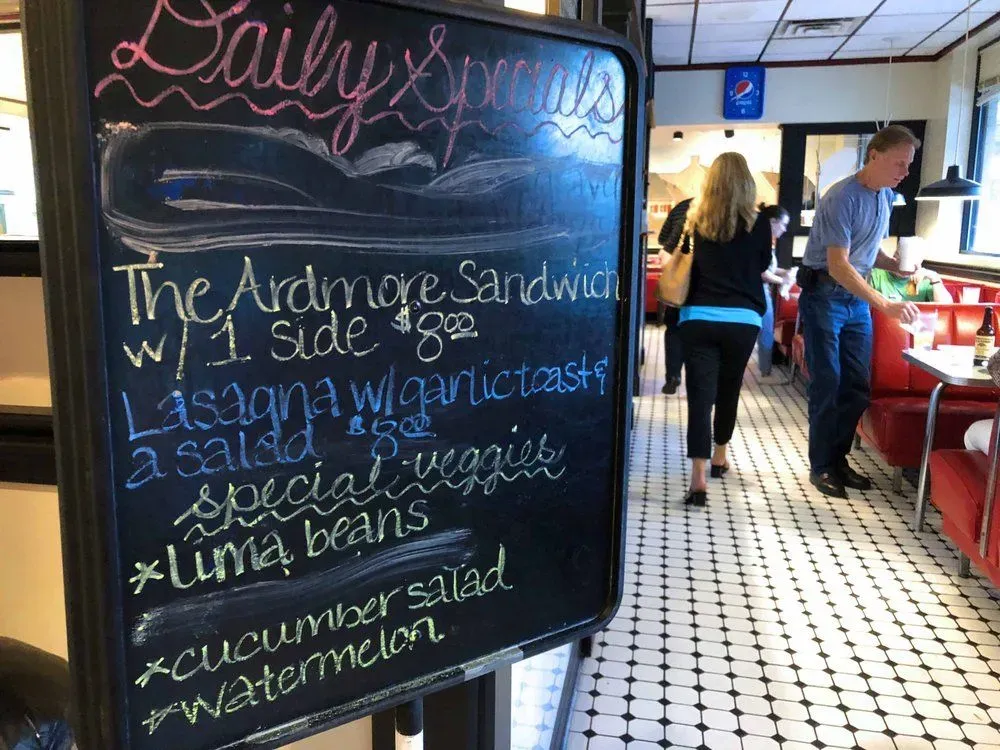 Daily Specials
The Ardmore Sandwich
w/ 1 side $8.00
Lasagna w/ garlic toast &
a salad $8.00
special veggies
*Lima beans
*cucumber salad
*watermelon
pepsi